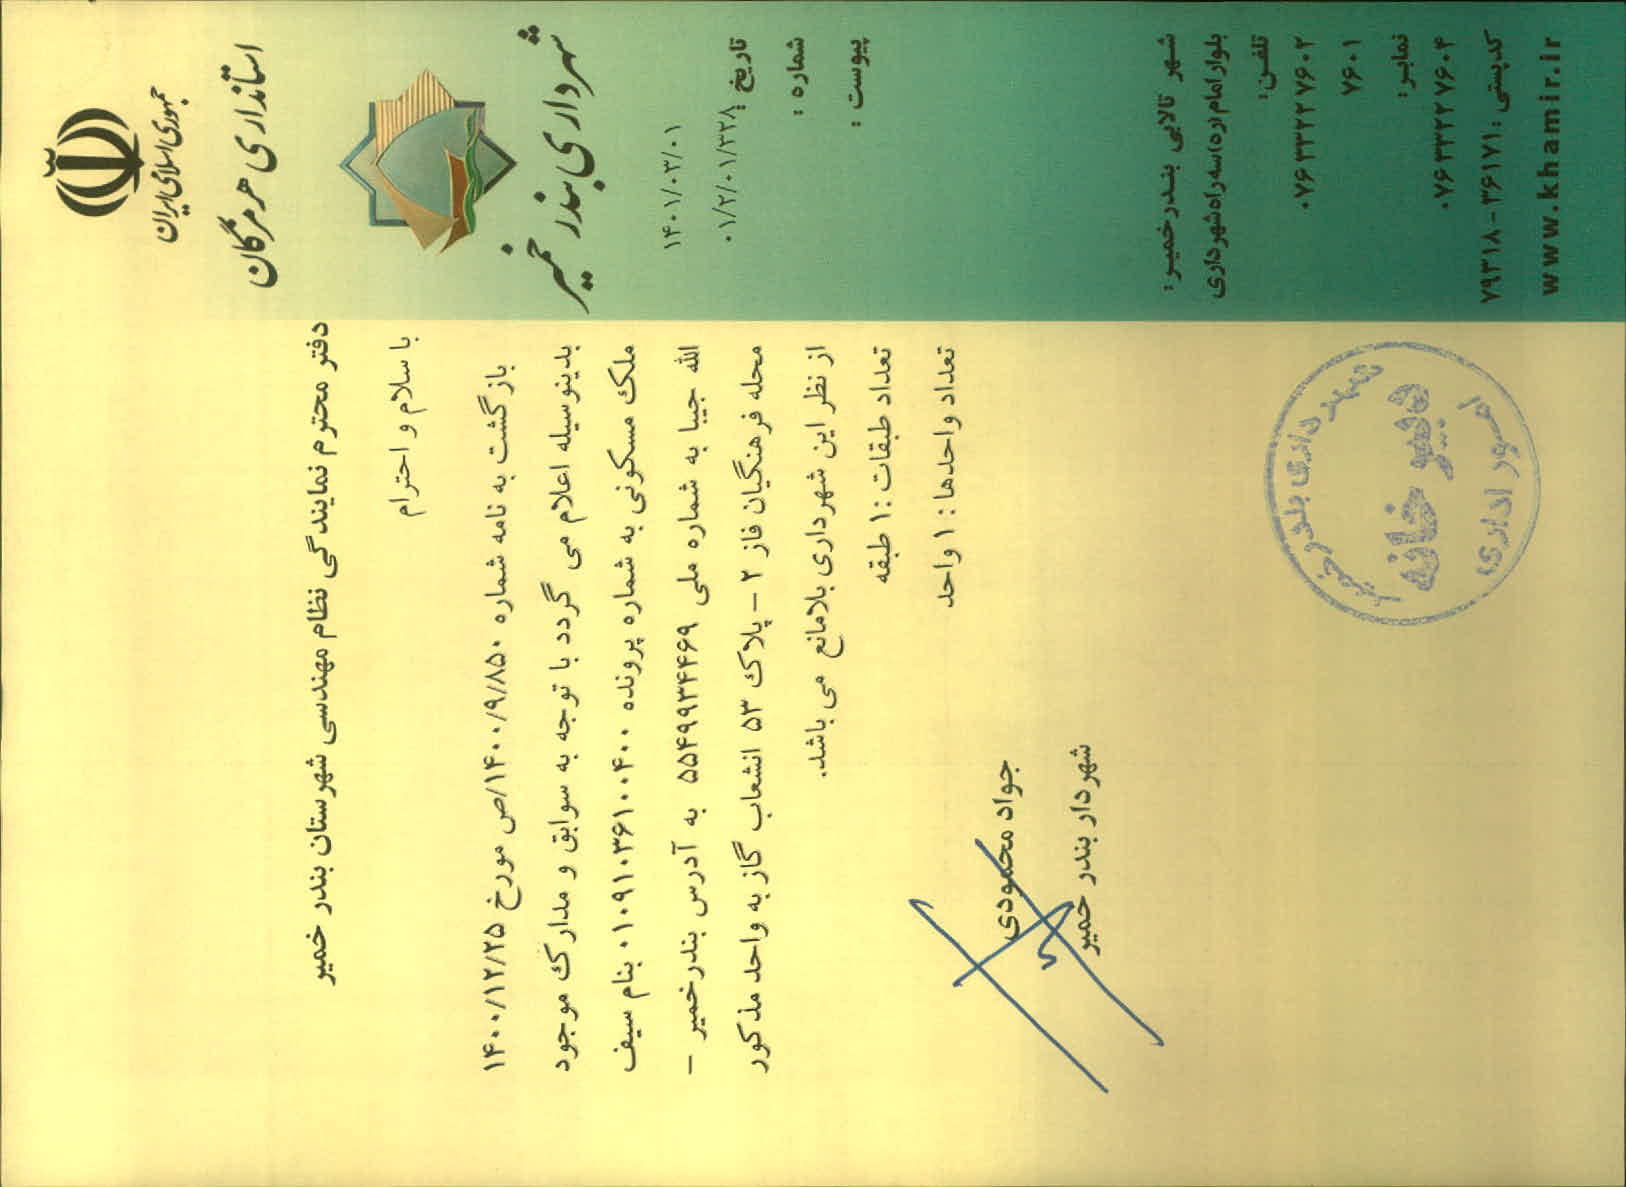 جمهوری اسلامی ایران
استانداری هرمزگان
شهرداری بندر خمیر
۱۴۰۱/۰۳/۰۱
تاریخ :
۰۱/۲/۰۱/۳۳۸
شماره :
پیوست :
شهر تالابی بندرخمیر:
بلوار امام(ره)سه راه شهرداری
تلفن:
۰۷۶۳۳۳۲۷۶۰۲
۷۶۰۱
نمابر:
۰۷۶۳۳۳۲۷۶۰۴
کدپستی: ۳۶۱۷۱-۷۹۳۱۸
www.khamir.ir
دفتر محترم نمایندگی نظام مهندسی شهرستان بندر خمیر
با سلام و احترام
بازگشت به نامه شماره ۱۴۰۰/۹/۸۵۰/ص مورخ ۱۴۰۰/۱۲/۲۵
بدینوسیله اعلام می گردد با توجه به سوابق و مدارک موجود
ملک مسکونی به شماره پرونده ۰۱۰۹۱۰۳۶۱۰۰۴۰۰ بنام سیف
الله جیبا به شماره ملی ۵۵۴۹۹۳۴۴۶۹ به آدرس بندرخمیر –
محله فرهنگیان فاز ۲ – پلاک ۵۳ انشعاب گاز به واحد مذکور
از نظر این شهرداری بلامانع می باشد.
تعداد طبقات :۱ طبقه
تعداد واحدها : ۱ واحد
جواد محمودی
شهردار بندر خمیر
شهرداری بندر خمیر
دبیرخانه
امور اداری